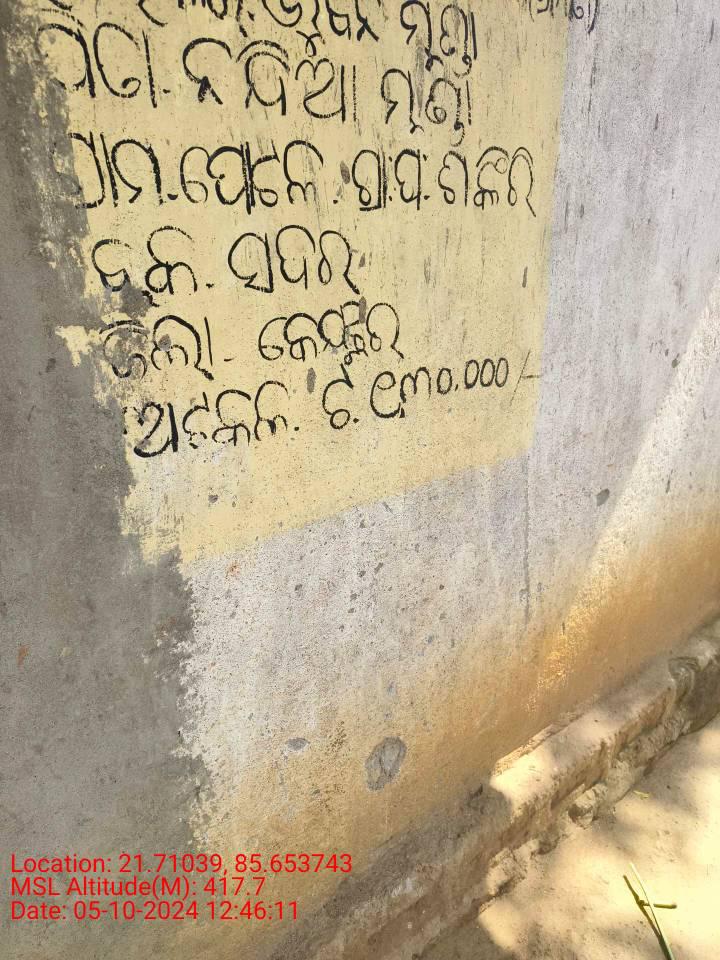 ଭୂଷନ ମୁଣ୍ଡା
ପିତା. ନନ୍ଦିଆ ମୁଣ୍ଡା
ଗ୍ରାମ.ପୋଟଳେ. ଗ୍ରା.ପ.ଶଙ୍କର
ବ୍ଲକ. ସଦର
ଜିଲା. କେନ୍ଦୁଝର
ଅଟକଳ. ଟ.୧୩୦.୦୦୦/-
Location: 21.71039, 85.653743
MSL Altitude(M): 417.7
Date: 05-10-2024 12:46:11